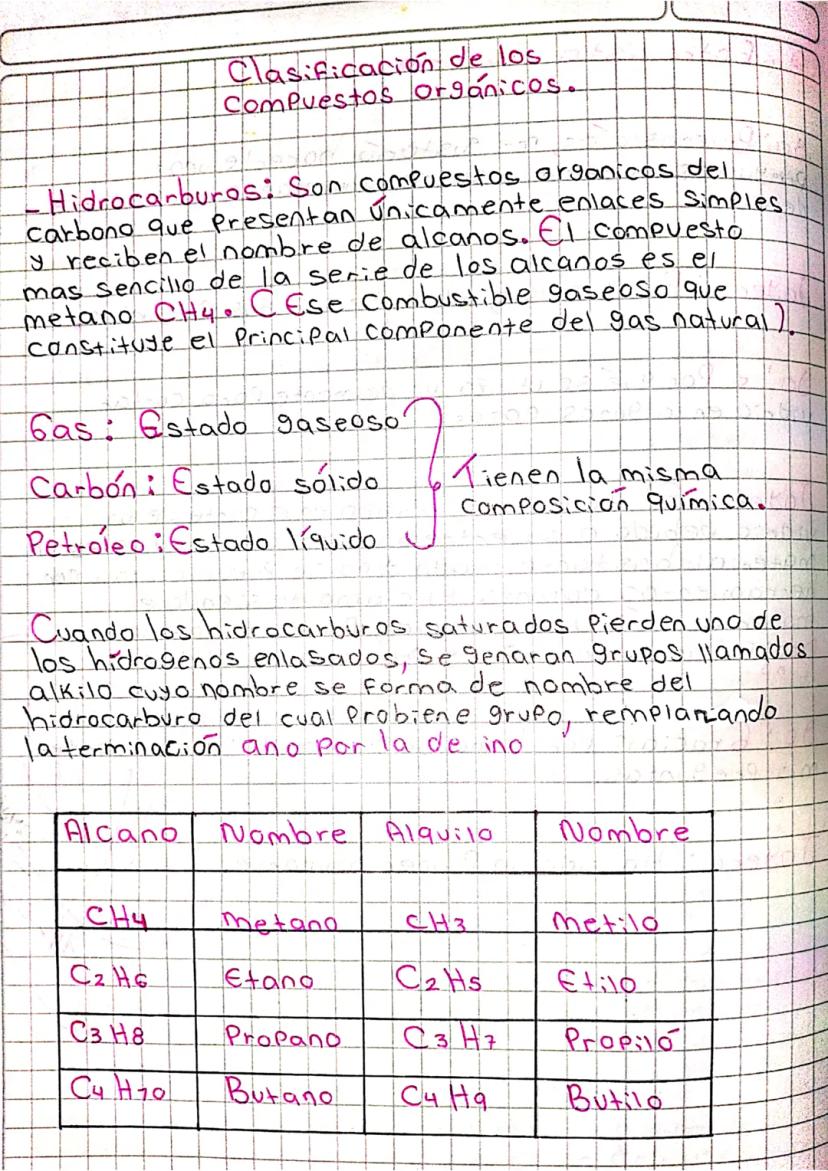 Clasificación de los
compuestos orgánicos.
- Hidrocarburos: Son compuestos organicos del
carbono que presentan únicamente enlaces simples
y reciben el nombre de alcanos. El compuesto
mas sencillo de la serie de los alcanos es el
metano CH4. (Ese combustible gaseoso que
constituye el principal componente del gas natural).
Gas: Estado gaseoso
Carbón: Estado sólido
Tienen la misma
composición química.
Petróleo: Estado líquido
Cuando los hidrocarburos saturados pierden uno de
los hidrogenos enlasados, se genaran grupos llamados
alkilo cuyo nombre se forma de nombre del
hidrocarburo del cual probiene grupo, remplanzando
la terminación ano por la de ino
Alcano Nombre Alquilo Nombre
CH4 metano CH3 Metilo
C2H6 Etano C2H5 Etilo
C3H8 Propano C3H7 Propiló
C4H10 Butano C4H9 Butilo